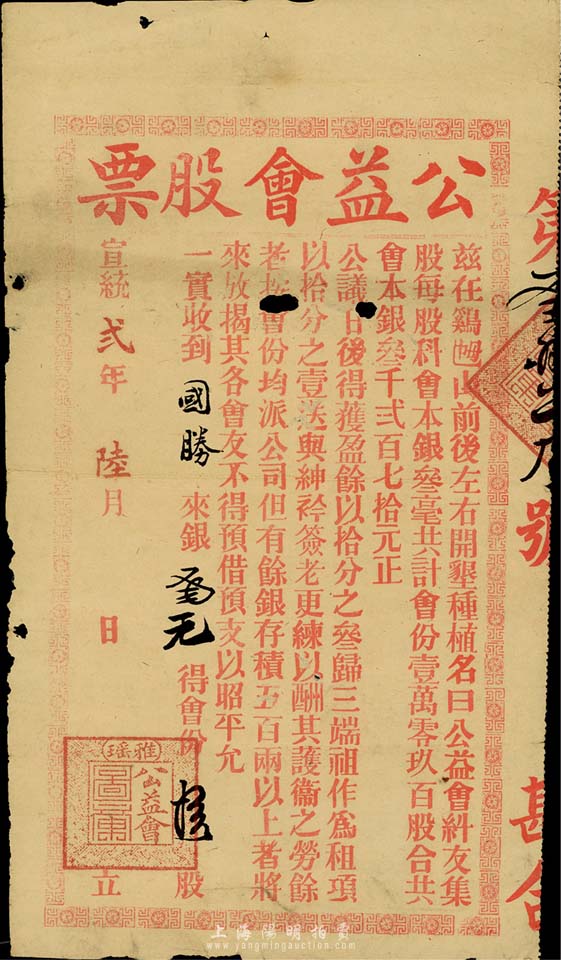 第
號
勘合
公益會股票
兹在鷄乸山前後左右開墾種植名曰公益會糾友集
股每股科會本銀叁毫共計會份壹萬零玖百股合共
會本銀叁千弍百七拾元正
公議日後得獲盈餘以拾分之叁歸三端祖作爲租項
以拾分之壹送與紳衿簽老更練以酬其護衞之勞餘
老按會份均派公司但有餘銀存積五百兩以上者將
來放揭其各會友不得預借預支以昭平允
一實收到 國勝 來銀 元 得會份 股
宣統弍年 陸月 日 立
雅瑤
公益會
上海陽明拍賣
www.yangmingauction.com